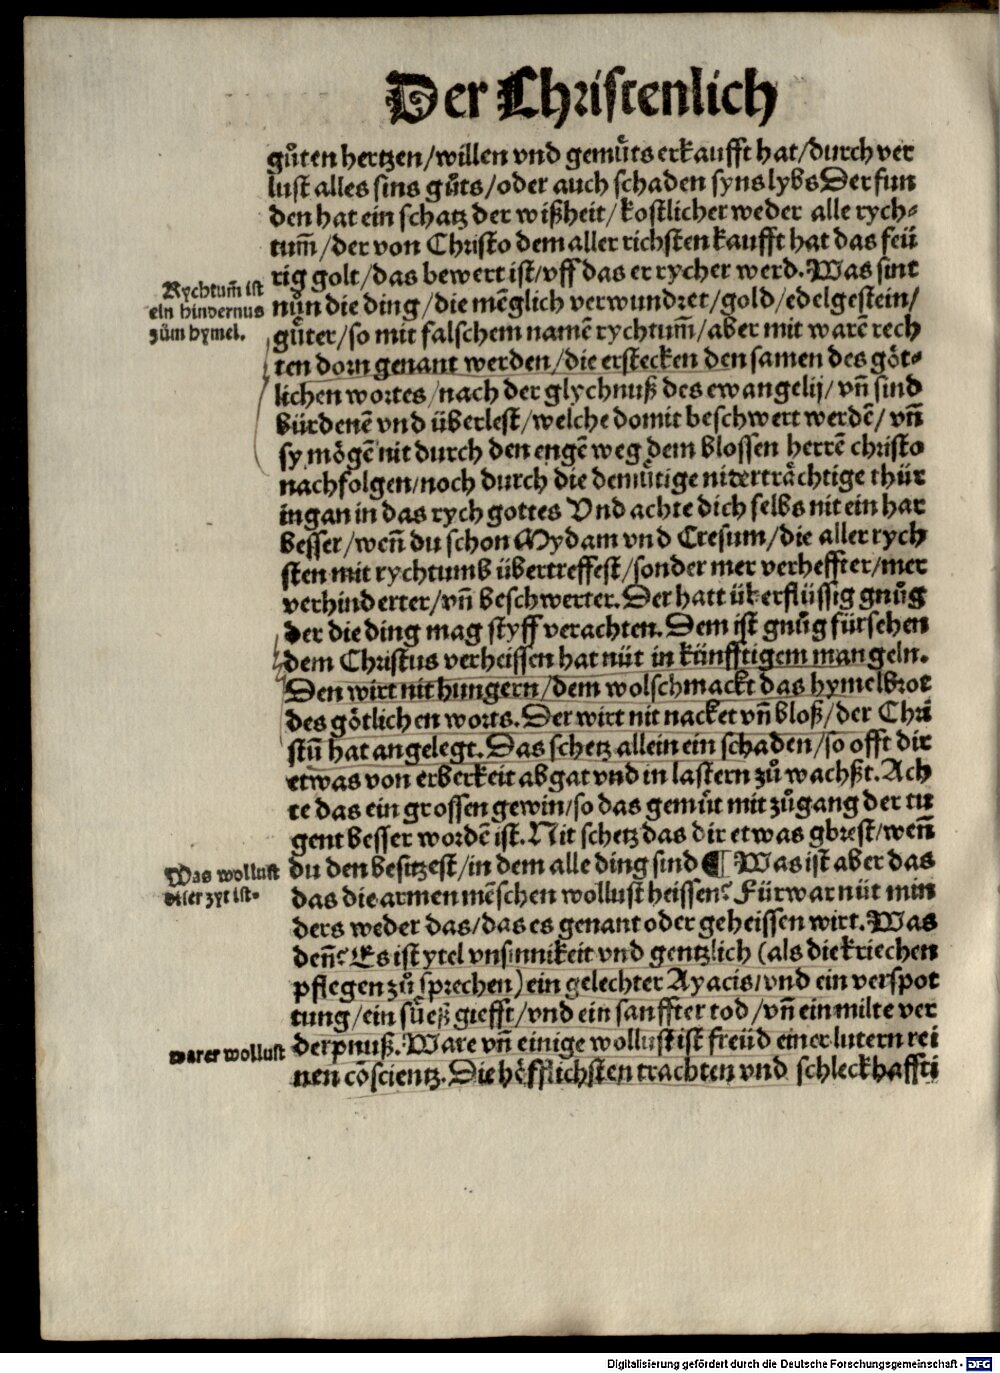 Der Christenlich
gůten hertzen/willen vnd gemu̍ts erkaufft hat/durch ver
lust alles sins gůts/oder auch schaden syns lybs Der fun
den hat ein schatz der wißheit/kostlicher weder alle rych⸗
tum̃/der von Christo dem aller richsten kaufft hat das feü
rig golt/das bewert ist/vff das er rycher werd. Was sint
Rychtum̃ ist
ein hindernus
zům hymel.
nůn die ding/die mẽglich verwundret/gold/edelgestein/
gůter/so mit falschem namẽ rychtum̃/aber mit warẽ rech
ten dorn genant werden/die erstecken den samen des göt⸗
lichen wortes/nach der glychnuß des ewangelij/vñ sind
bürdenẽ vnd überlest/welche domit beschwert werdẽ/vñ
sy mögẽ nit durch den engẽ weg dem blossen herrẽ christo
nachfolgen/noch durch die demůtige niderträchtige thür
ingan in das rych gottes Vnd achte dich selbs nit ein har
besser/weñ du schon Mydam vnd Cresum/die aller rych
sten mit rychtumb übertreffest/sonder mer verheffter/mer
verhinderter/vñ beschwerter. Der hatt überflüssig gnůg
der die ding mag styff verachten. Dem ist gnůg fürsehen
dem Christus verheissen hat nüt in künfftigem mangeln.
Den wirt nit hungern/dem wolschmackt das hymelbrot
des götlichen worts. Der wirt nit nacket vñ bloß/der Chri
stũ hat angelegt. Das schetz allein ein schaden/so offt dir
etwas von erberkeit abgat vnd in lastern zů wachßt. Ach
te das ein grossen gewin/so das gemüt mit zůgang der tu
gent besser wordẽ ist. Nit schetz das dir etwas gbrest/weñ
Was wollust
diser zyt ist.
du den besitzest/in dem alle ding sind ¶ Was ist aber das
das die armen mẽschen wollust heissen? Fürwar nüt min
ders weder das/das es genant oder geheissen wirt. Was
deñ? Es ist ytel vnsinnikeit vnd gentzlich (als die kriechen
pflegen zů sprechen) ein gelechter Ayacis/vnd ein verspot
tung/ein süeß giefft/vnd ein sanffter tod/vñ ein milte ver
warer wollust
derpnuß. Ware vñ einige wollust ist freüd einer lutern rei
nen cõscientz. Die höfflichsten trachten vnd schleckhaffti
Digitalisierung gefördert durch die Deutsche Forschungsgemeinschaft - DFG